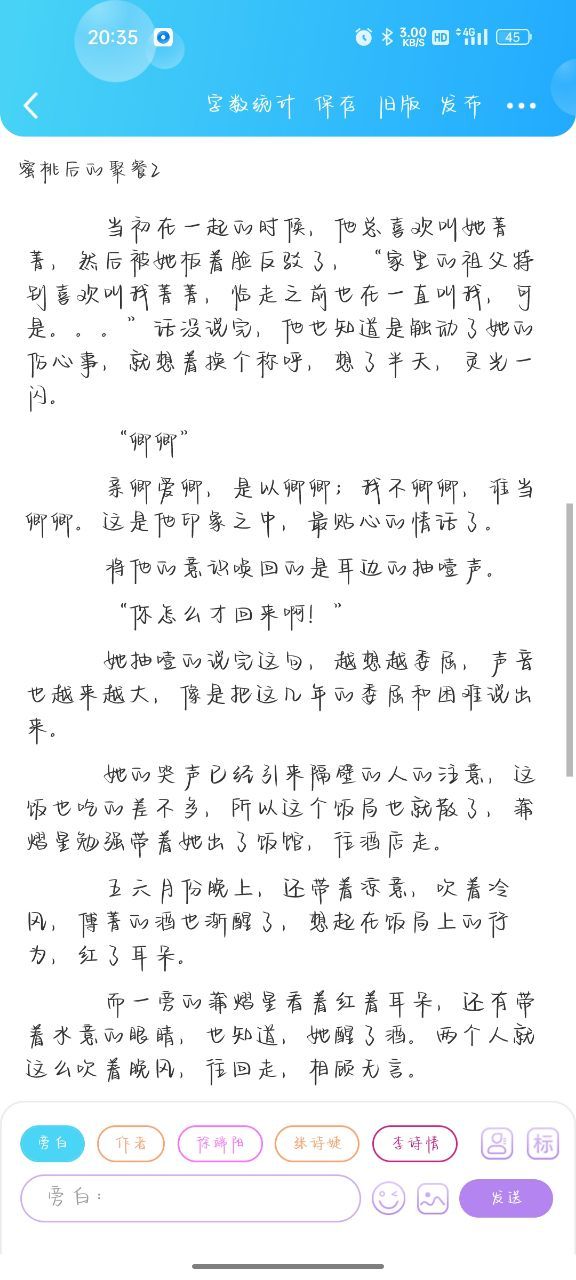 20:35
3.00
KB/S
HD
4G
45
字数统计 保存 旧版 发布
蜜桃后的聚餐2
当初在一起的时候，他总喜欢叫她菁
菁，然后被她板着脸反驳了，“家里的祖父特
别喜欢叫我菁菁，临走之前也在一直叫我，可
是。。。”话没说完，他也知道是触动了她的
伤心事，就想着换个称呼，想了半天，灵光一
闪。
“卿卿”
亲卿爱卿，是以卿卿；我不卿卿，谁当
卿卿。这是他印象之中，最贴心的情话了。
将他的意识唤回的是耳边的抽噎声。
“你怎么才回来啊！”
她抽噎的说完这句，越想越委屈，声音
也越来越大，像是把这几年的委屈和困难说出
来。
她的哭声已经引来隔壁的人的注意，这
饭也吃的差不多，所以这个饭局也就散了，蒲
熠星勉强带着她出了饭馆，往酒店走。
五六月份晚上，还带着凉意，吹着冷
风，傅菁的酒也渐醒了，想起在饭局上的行
为，红了耳朵。
而一旁的蒲熠星看着红着耳朵，还有带
着水意的眼睛，也知道，她醒了酒。两个人就
这么吹着晚风，往回走，相顾无言。
旁白 作者 徐端阳 张诗婕 李诗情 标
旁白： 发送